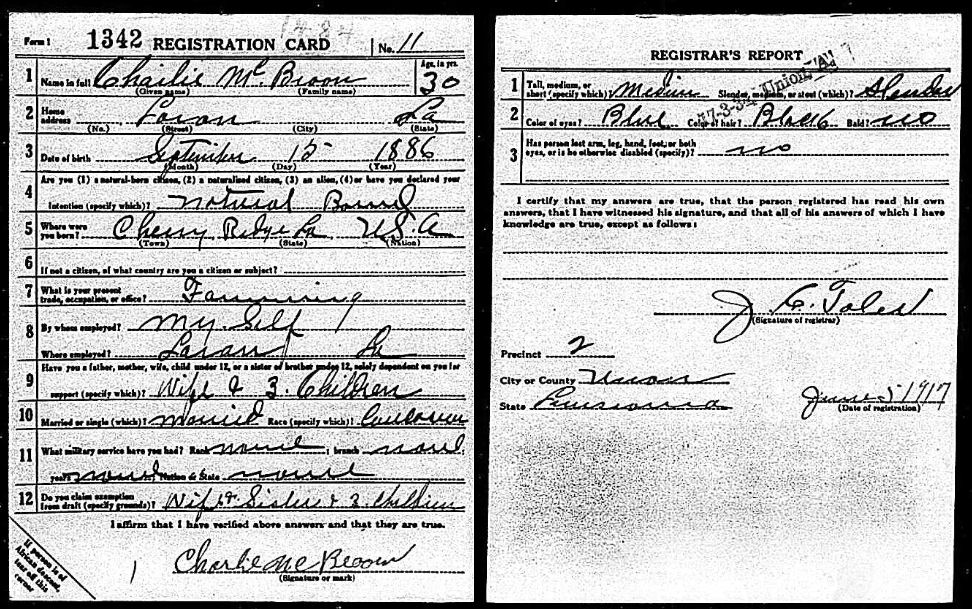 Form 1 1342 REGISTRATION CARD No. 11
1 Name in full Charlie Mc Broom Age, in yrs. 30
(Given name) (Family name)
2 Home address Laran La
(No.) (Street) (City) (State)
3 Date of birth September 15 1886
(Month) (Day) (Year)
4 Are you (1) a natural-born citizen, (2) a naturalized citizen, (3) an alien, (4) or have you declared your
intention (specify which)? natural Bornd
5 Where were you born? Cherry Ridge La U.S.A
(Town) (State) (Nation)
6 If not a citizen, of what country are you a citizen or subject?
7 What is your present trade, occupation, or office? Farming
8 By whom employed? My Self
Where employed? Laran La
9 Have you a father, mother, wife, child under 12, or a sister or brother under 12, solely dependent on you for
support (specify which)? Wife & 3. Children
10 Married or single (which)? Married Race (specify which)? Caucasian
11 What military service have you had? Rank none ; branch none ;
years none Nation & State none
12 Do you claim exemption from draft (specify grounds)? Wife & Sister & 3 Children
I affirm that I have verified above answers and that they are true.
Charlie Mc Broom
(Signature or mark)
If person is of African descent, tear off this corner
REGISTRAR'S REPORT
1 Tall, medium, or short (specify which)? Medium Slender, medium, or stout (which)? Slender
2 Color of eyes? Blue Color of hair? Black Bald? no
3 Has person lost arm, leg, hand, foot, or both eyes, or is he otherwise disabled (specify)? no
I certify that my answers are true, that the person registered has read his own
answers, that I have witnessed his signature, and that all of his answers of which I have
knowledge are true, except as follows:
(Signature of registrar)
Precinct 2
City or County Union
State Louisiana June 5 1917
(Date of registration)